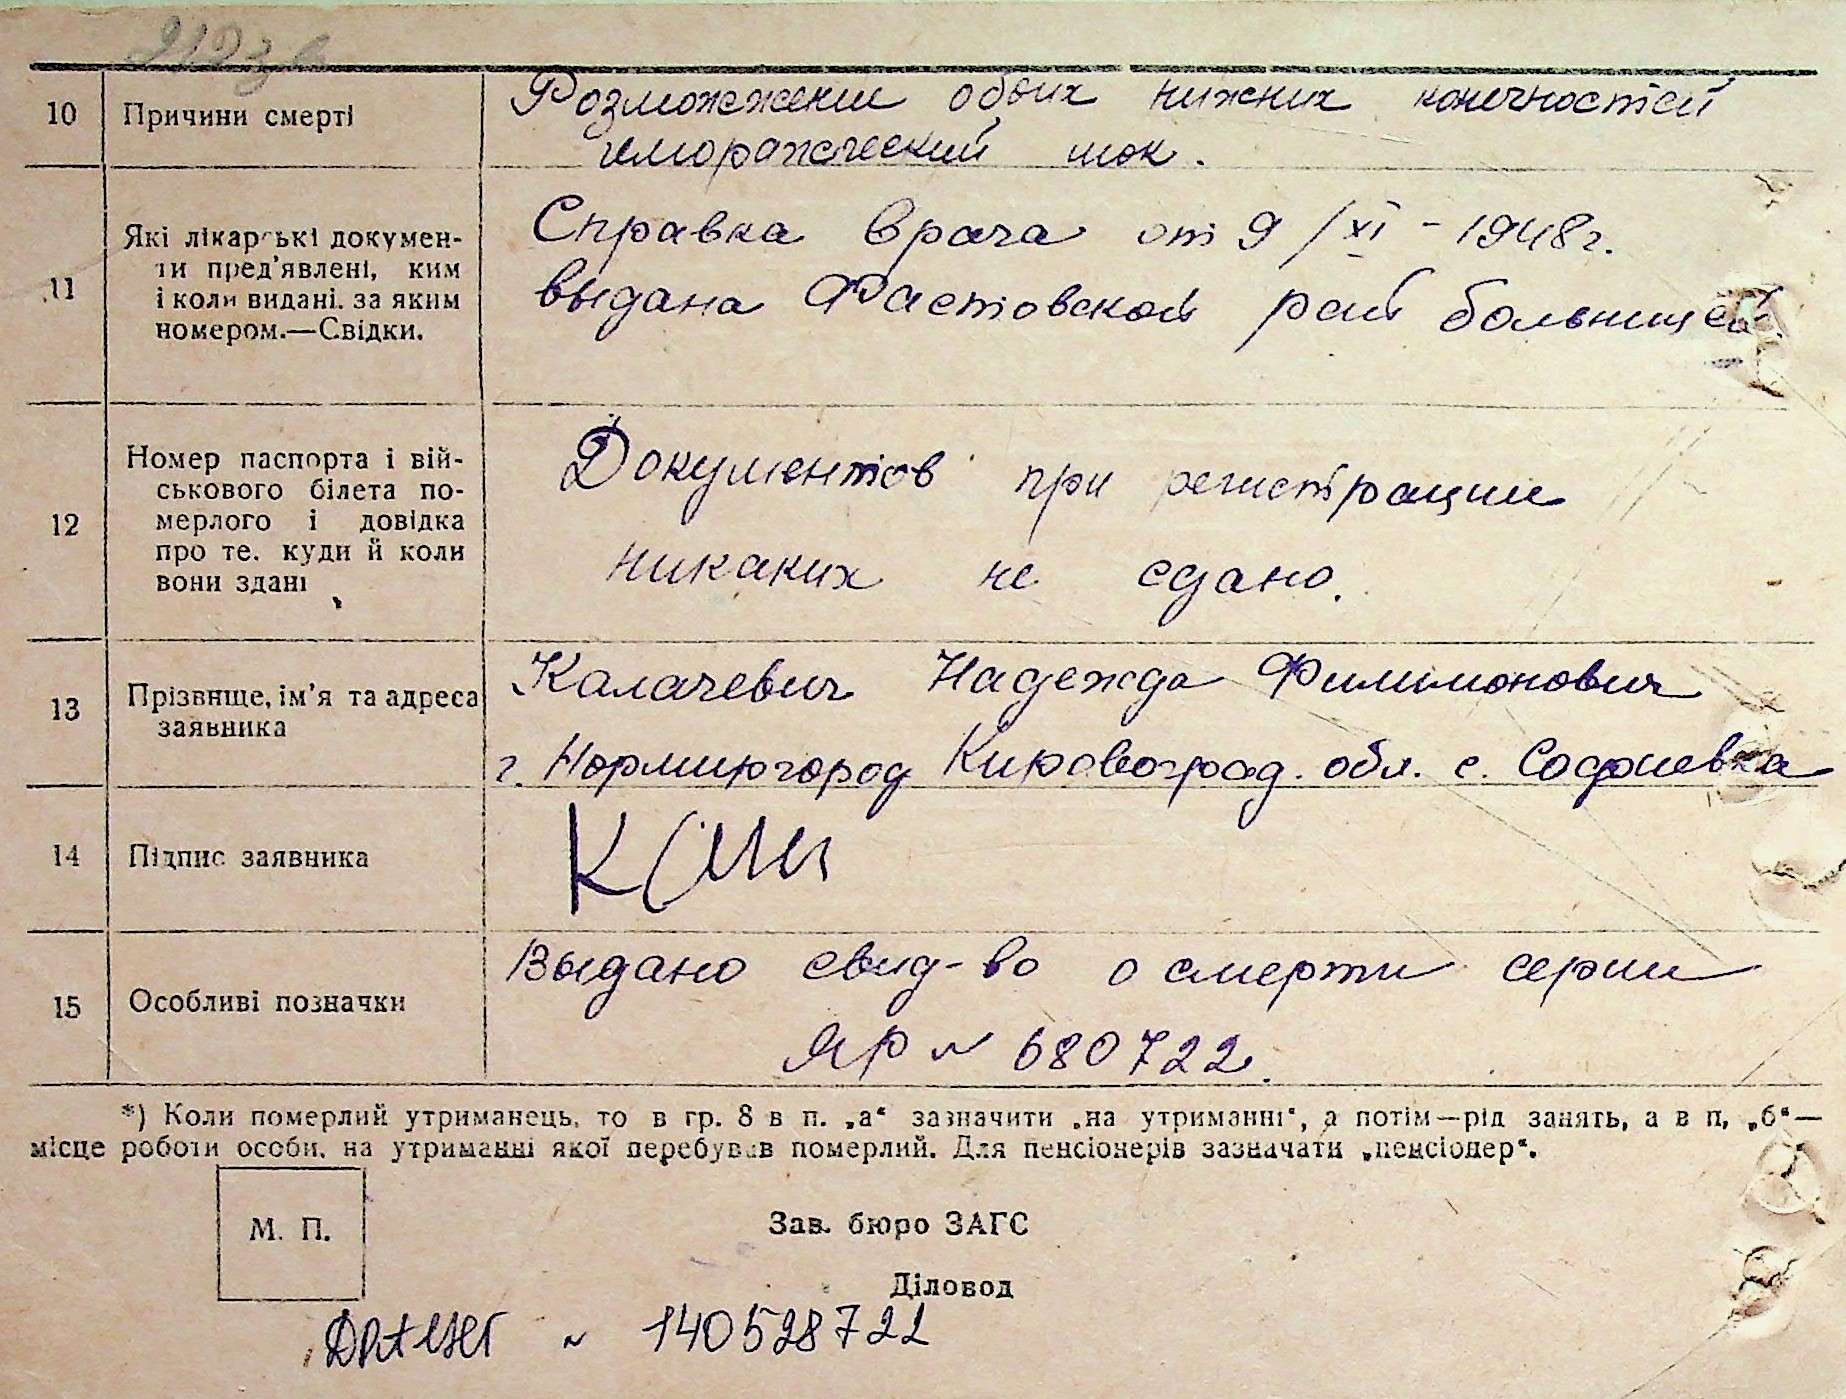 10 Причини смерті
Розможжении обоих нижних конечностей
гиморажический шок.
11 Які лікарські докумен-
ти пред'явлені, ким
і коли видані. за яким
номером.—Свідки.
Справка врача от 9/XI-1948г.
выдана Фастовской рай больницей.
12 Номер паспорта і вій-
ськового білета по-
мерлого і довідка
про те. куди й коли
вони здані
Документов при регистрации
никаких не сдано.
13 Прізвище, ім'я та адреса
заявника
Калачевич Надежда Филимонович
г. Кировоград. обл. с. Софиевка
14 Підпис заявника
15 Особливі позначки
Выдано свид-во о смерти серии
ЯР № 680722.
*) Коли померлий утриманець, то в гр. 8 в п. „а“ зазначити „на утриманні“, а потім—рід занять, а в п, „б“—
місце роботи особи. на утриманні якої перебував померлий. Для пенсіонерів зазначати „пенсіонер“.
М. П.
Зав. бюро ЗАГС
Діловод
ДРАЦСГ № 140528722